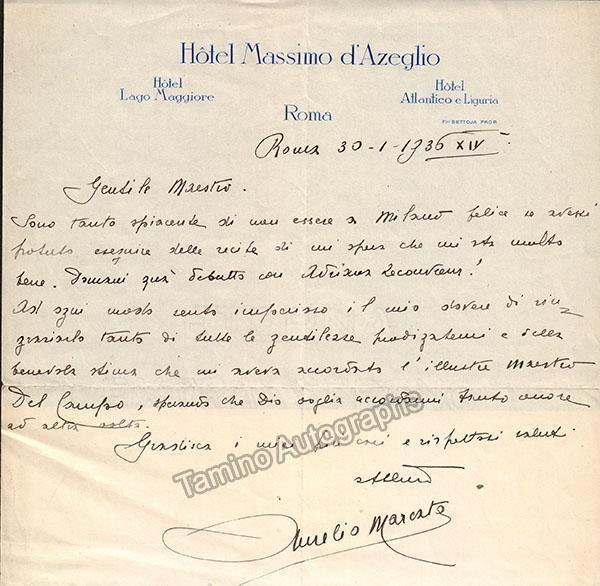 Hôtel Massimo d'Azeglio
Hôtel
Lago Maggiore
Hôtel
Atlantico e Liguria
Roma
F.lli BETTOJA PROP.
Roma 30-1-1936 XIV
Gentile Maestro.
Sono tanto spiacente di non essere a Milano felice io avessi
potuto eseguire delle recite di un'opera che mi sta molto
bene. Domani quà debutto con Adriana Lecouvreur!
Ad ogni modo sento imperioso il mio dovere di rin
graziarlo tanto di tutte le gentilezze prodigatemi e della
benevola stima che mi aveva accordato l'illustre Maestro
Del Campo, sperando che Dio voglia accordarmi tanto onore
ad altra volta.
Gradisca i miei più cari e rispettosi saluti
Aurelio Marcato
Tamino Autographs